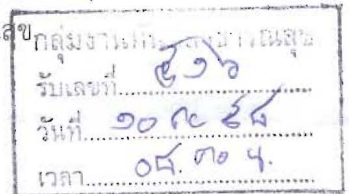 กลุ่มงาน
รับเลขที่ ๕๑๖
วันที่ ๑๐ กค ๕๘
เวลา ๐๘.๓๐ น.